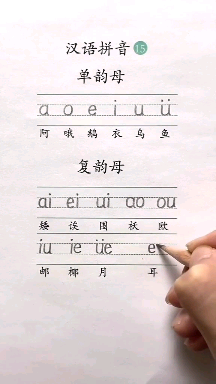 汉语拼音 15
单韵母
a o e i u ü
阿 哦 鹅 衣 乌 鱼
复韵母
ai ei ui ao ou
矮 诶 围 袄 欧
iu ie üe e
邮 椰 月 耳